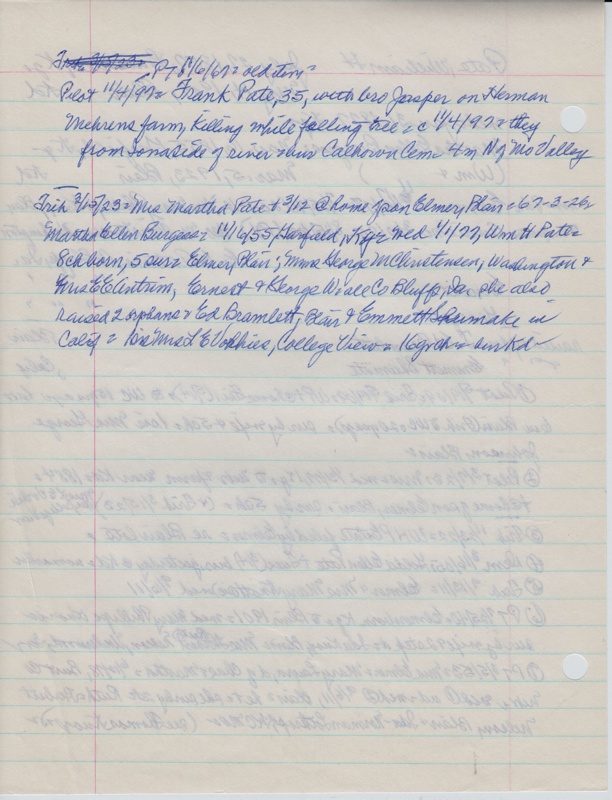 PT 1/6/67= old item=
Pilot 11/4/97= Frank Pate, 35, with bro Jasper on Herman
Mehrens farm, killing while felling tree = c 11/4/97= they
from Iona side of river = bur Calhoun Cem 4 m N of Mo Valley
Trib 3/15/23= Mrs Martha Pate + 3/12 @ home son Elmer, Blair = 67-3-26=
Martha Ellen Burgess= 11/16/55, Garfield, Ky= wed 1/1/77, Wm H Pate=
8ch born, 5 sur= Elmer, Blair; Mrs George M Christensen, Washington &
Mrs E E Antrim, Ernest & George W all Co Bluffs, Ia= she also
raised 2 orphans= Ed Bramlett, Blair & Emmett Shumake in
Calif= sis Mrs L E Vorhies, College View= 16grch= bur Kd-